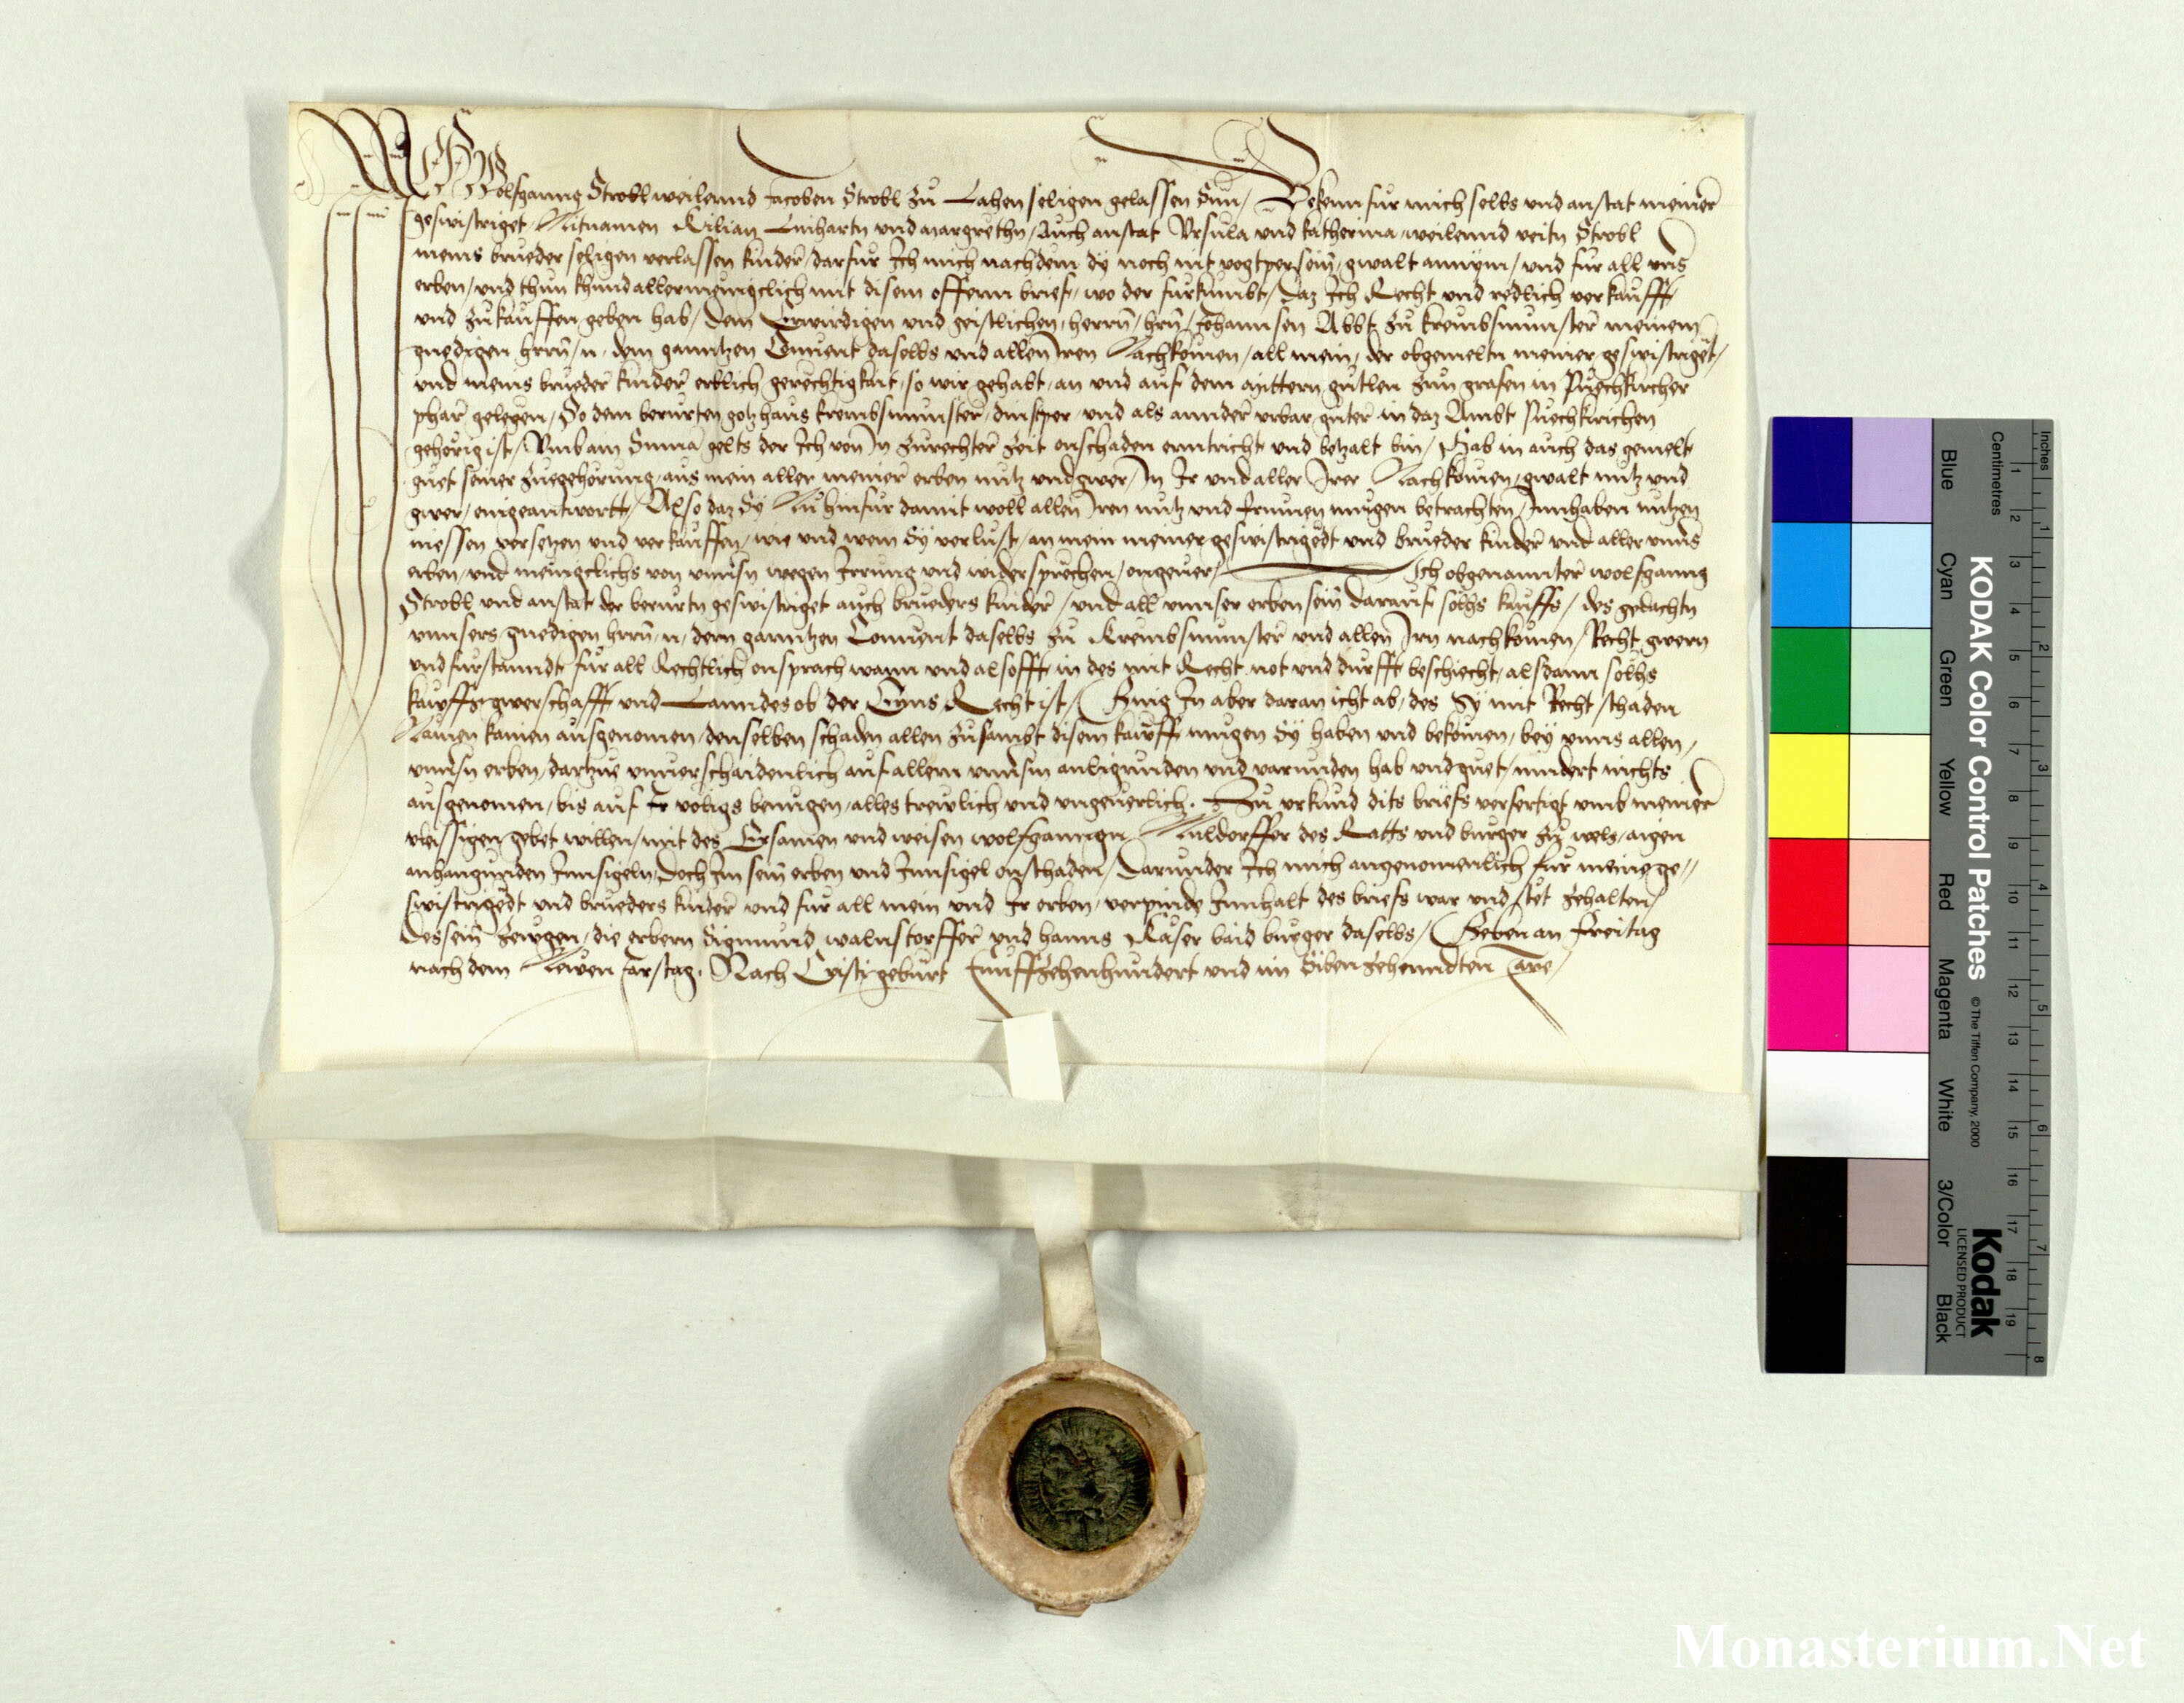 Ich Wolfganng Strobl weilennd Jacoben Strobl zu Lahen seligen gelassen Sun / Bekenn fur mich selbs und anstat meiner
geswistriget / Mitnamen Kilian Linhartn und margrethn / Auch anstat Ursula und katherina / weilennd veitn Strobl
meins brueder seligen verlassen kinder / darfur Ich mich nachdem dy noch nit vogtper sein / gwalt annym / und fur all uns
erben / und thun khund allermenigclich mit disem offenn brief / wo der furkumbt / daz Ich Recht und redlich verkaufft /
und zukauffen geben hab / dem Erwirdigen und geistlichen / herrn / hrn / Johannsen Abbt zu krembsmunster meinem
gnedigen hrrn / n / dem ganntzen Convent daselbs und allen Iren Nachkomen / all mein / der obgemeltn meiner geswistriget /
und meins brueder kinder erblich gerechtigkait / so wir gehabt / an und auf dem mittern gutlen zun grafen in Puechkircher
pharr gelegen / So dem berurten gotzhaus krembsmunster / dinstper / und als annder urbar guter in daz Ambt Puechkirichen
gehorig ist / Umb ain Suma gelts der Ich von In zurechter zeit onschaden enntricht und betzalt bin / Hab in auch das gemelt
guet seiner zuegehorung / aus mein aller meiner erben nutz und gwer / In Ir und aller Irer Nachkomen / gwalt nutz und
gwer / eingeantwortt / Also daz Sy Nu hinfur damit woll allen Iren nutz und frumen mugen betrachten / Innhaben nutzen
niessen versetzen und verkauffen / wie und wem Sy verlust / an mein meiner geswistrigedt und brueder kinder und aller unns
erben / und menigclichs von unnsn wegen Irrung und widersprechen / ongever / Ich obgenannter wolfganng
Strobl und anstat der berurtn geswistriget auch brueders kinder / und all unnser erben sein darauf solhs kauffs / des gedachtn
unnsers gnedigen hrrn / n / dem ganntzen Convent daselbs zu Krembsmunster und allen Irn nachkomen / Recht gwern
und furstanndt fur all Rechtlich onsprach wann und alsofft in des mit Recht not und durfft beschiecht / alsdann solhs
kauffs gwerschafft und Lanndes ob der Enns Recht ist / Gieng In aber daran icht ab / des Sy mit Recht schaden
Namen kainen ausgenomen / denselben schaden allen zusambt disem kauff mugen Sy haben und bekomen / bey unns allen /
unnsn erben / dartzue unverschaidenlich auf allem unnsm anligunden und varunden hab und guet / nindert nichts
ausgenomen / bis auf Ir voligs benugen / alles trewlich und ungeverlich . Zu urkund dits briefs verfertigt umb meiner
vleissigen gebet willen / mit des Ersamen und weisen wolfganngn Muldorffer des Ratts und burger zu wels / aigen
anhangunden Innsigeln / Doch Im sein erben und Innsigel onschaden / Darunder Ich mich angenomenlich fur meine ge=
swistrigedt und brueders kinder und fur all mein und Ir erben / verpinde Innhalt des briefs war und stet zehalten /
Des sein Zewgen / die erbern Sigmund walnstorffer und hanns Kaser baid burger daselbs / Geben an Freitag
nach dem Newen Jarstag . Nach Cristi geburt Funffzehenhundert und im Sibenzehenndten Jare /
Inches
Centimetres
KODAK Color Control Patches
© The Tiffen Company, 2000
Kodak
LICENSED PRODUCT
Blue Cyan Green Yellow Red Magenta White 3/Color Black
1 2 3 4 5 6 7 8 9 10 11 12 13 14 15 16 17 18 19
1 2 3 4 5 6 7 8
Monasterium.Net